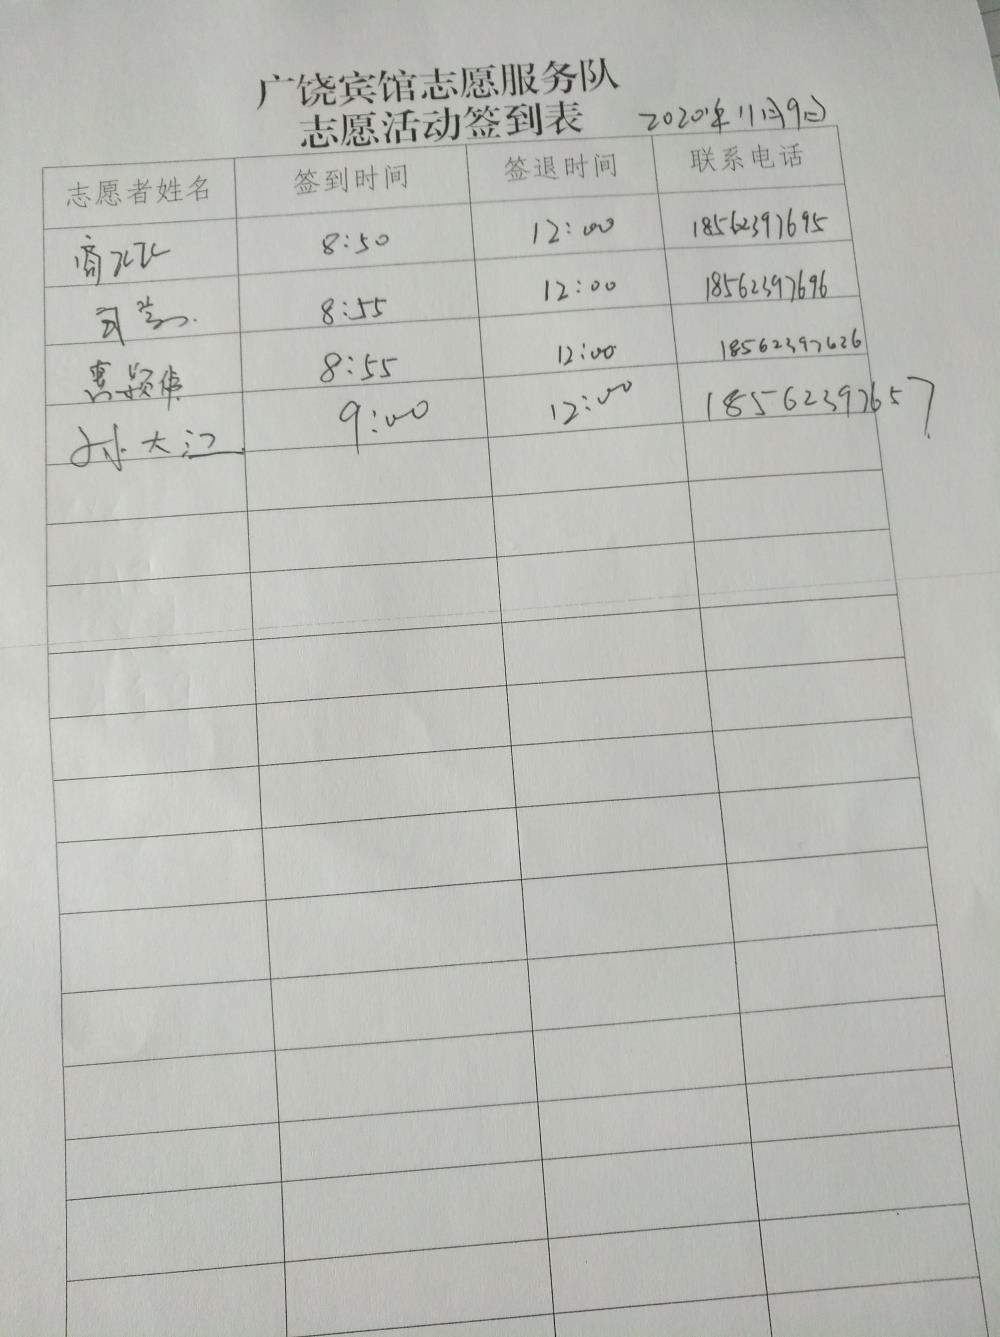 广饶宾馆志愿服务队
志愿活动签到表 2020年11月9日
志愿者姓名 签到时间 签退时间 联系电话
8:50 12:00 18562397695
8:55 12:00 18562397696
8:55 12:00 18562397626
孙大江 9:00 12:00 18562397657